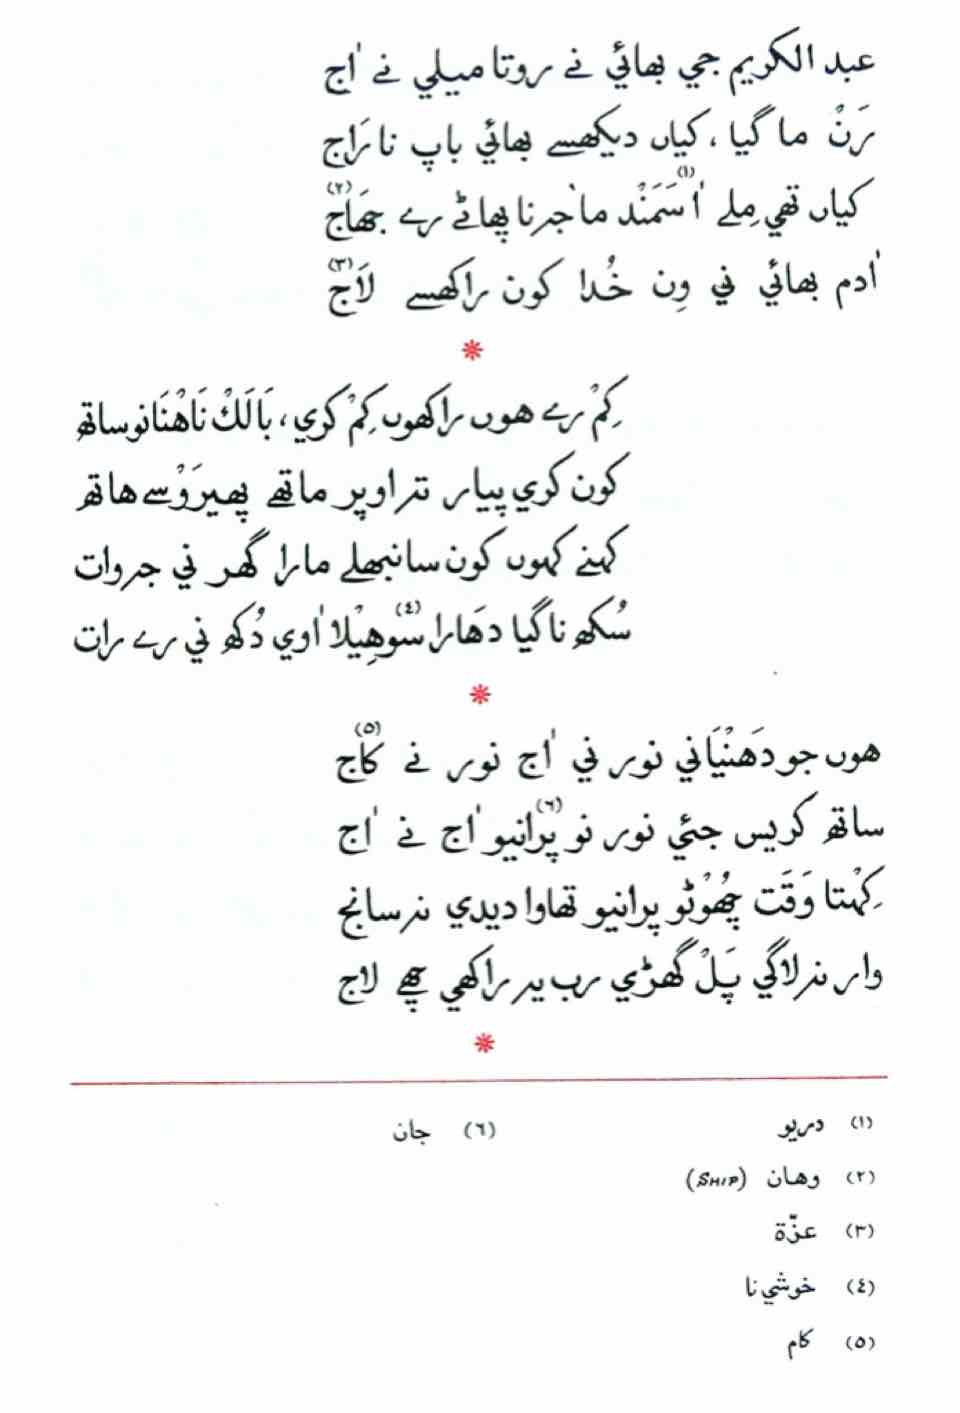 عبد الكريم جي بھائي نے روتا ميلي نے اٰج
رَنْ ما گيا ، كياں ديكھسے بھائي باپ نا رَاج
كياں تھي مِلے اٰسَمَنْد (١) ماٰجہ نا پھاٹے رے جھَاج (٢)
اٰدم بھائي ني وِن خُدا كون راكھسے لَاج (٣)
كِمْ رے هوں راكھوں كِمْ كري، بَالَكْ نَاهْنَا نو ساتھ
كون كري پيار تتر اوپر ماتھے پھيرَوْسے هاتھ
كہنے كہوں كون سانبھلے مارا گھر ني جہ وات
سُكھ نا گيا دھَارا سَوْهِيْلا (٤) اٰوي دُكھ ني رے رات
هوں جو دھَنْيَاني نور ني اٰج نور نے كَاج (٥)
ساتھ كريس جئي نور نو پرانيو (٦) اٰج نے اٰج
كِہْتا وَقَت چھُوْٹو پرانيو تھاوا ديدي نہ سانج
وار نہ لاگي پَلْ گھڑي رب يہ راكھي چھے لاج
(١) دريو
(٢) وهان (SHIP)
(٣) عزّة
(٤) خوشي نا
(٥) كام
(٦) جان